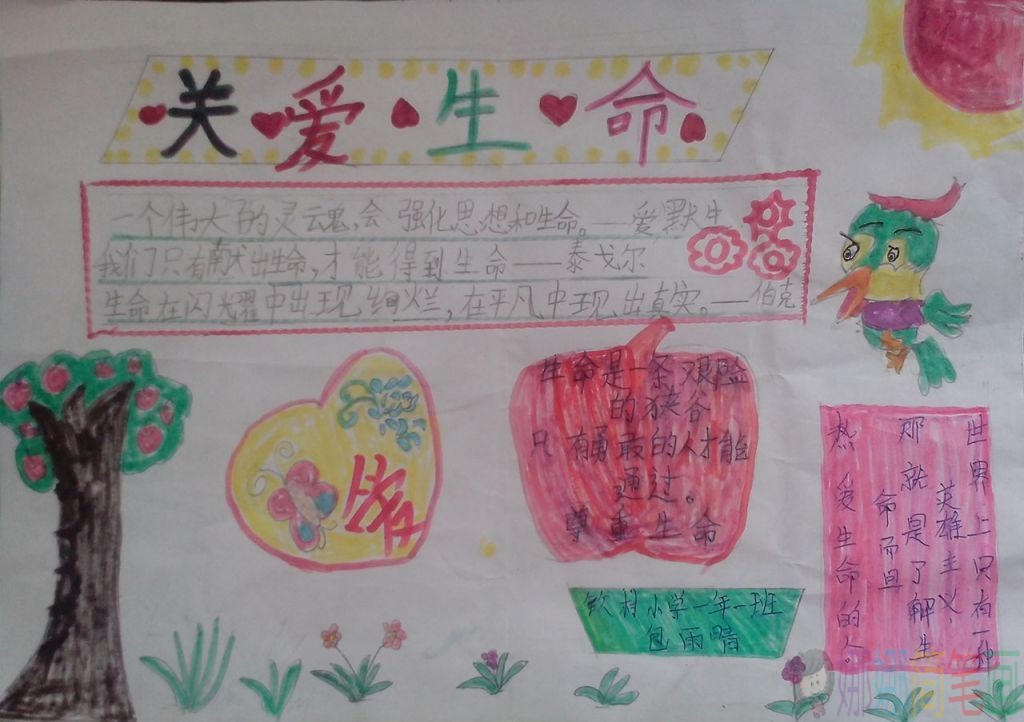 关爱生命
一个伟大的灵魂,会强化思想和生命。——爱默生
我们只有献出生命,才能得到生命——泰戈尔
生命在闪耀中出现绚烂,在平凡中现出真实。——伯克
生命是一条艰险
的狭谷
只有勇敢的人才能
通过。
尊重生命
世界上只有一种
英雄主义,
那就是了解生
命而且
热爱生命的人。
小学一年一班
包雨晴
娜娜简笔画